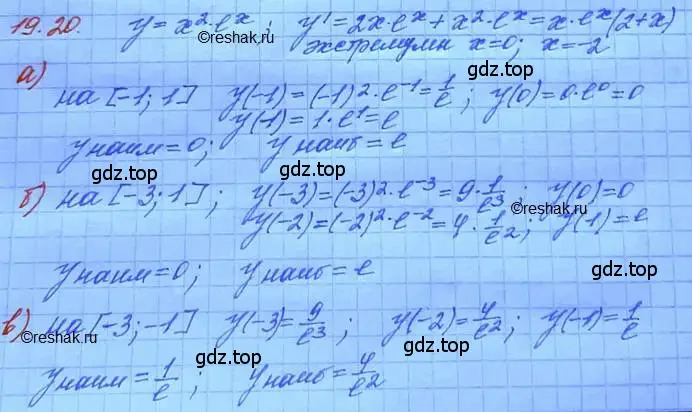 19.20. y = x²·eˣ; y' = 2x·eˣ + x²·eˣ = x·eˣ(2+x)
©reshak.ru экстремумы x=0; x=-2
а) gdz.top
на [-1; 1] y(-1) = (-1)²·e⁻¹ = 1/e; y(0) = 0·e⁰ = 0
y(1) = 1·e¹ = e
y наим = 0; y наиб = e
gdz.top gdz.top
б) на [-3; 1]; y(-3) = (-3)²·e⁻³ = 9·1/e³; y(0) = 0
y(-2) = (-2)²·e⁻² = 4·1/e²; y(1) = e
©reshak.ru
y наим = 0; y наиб = e
gdz.top gdz.top
в) на [-3; -1] y(-3) = 9/e³; y(-2) = 4/e²; y(-1) = 1/e
©reshak.ru
gdz.top gdz.top
y наим = 1/e; y наиб = 4/e²
©reshak.ru
gdz.top